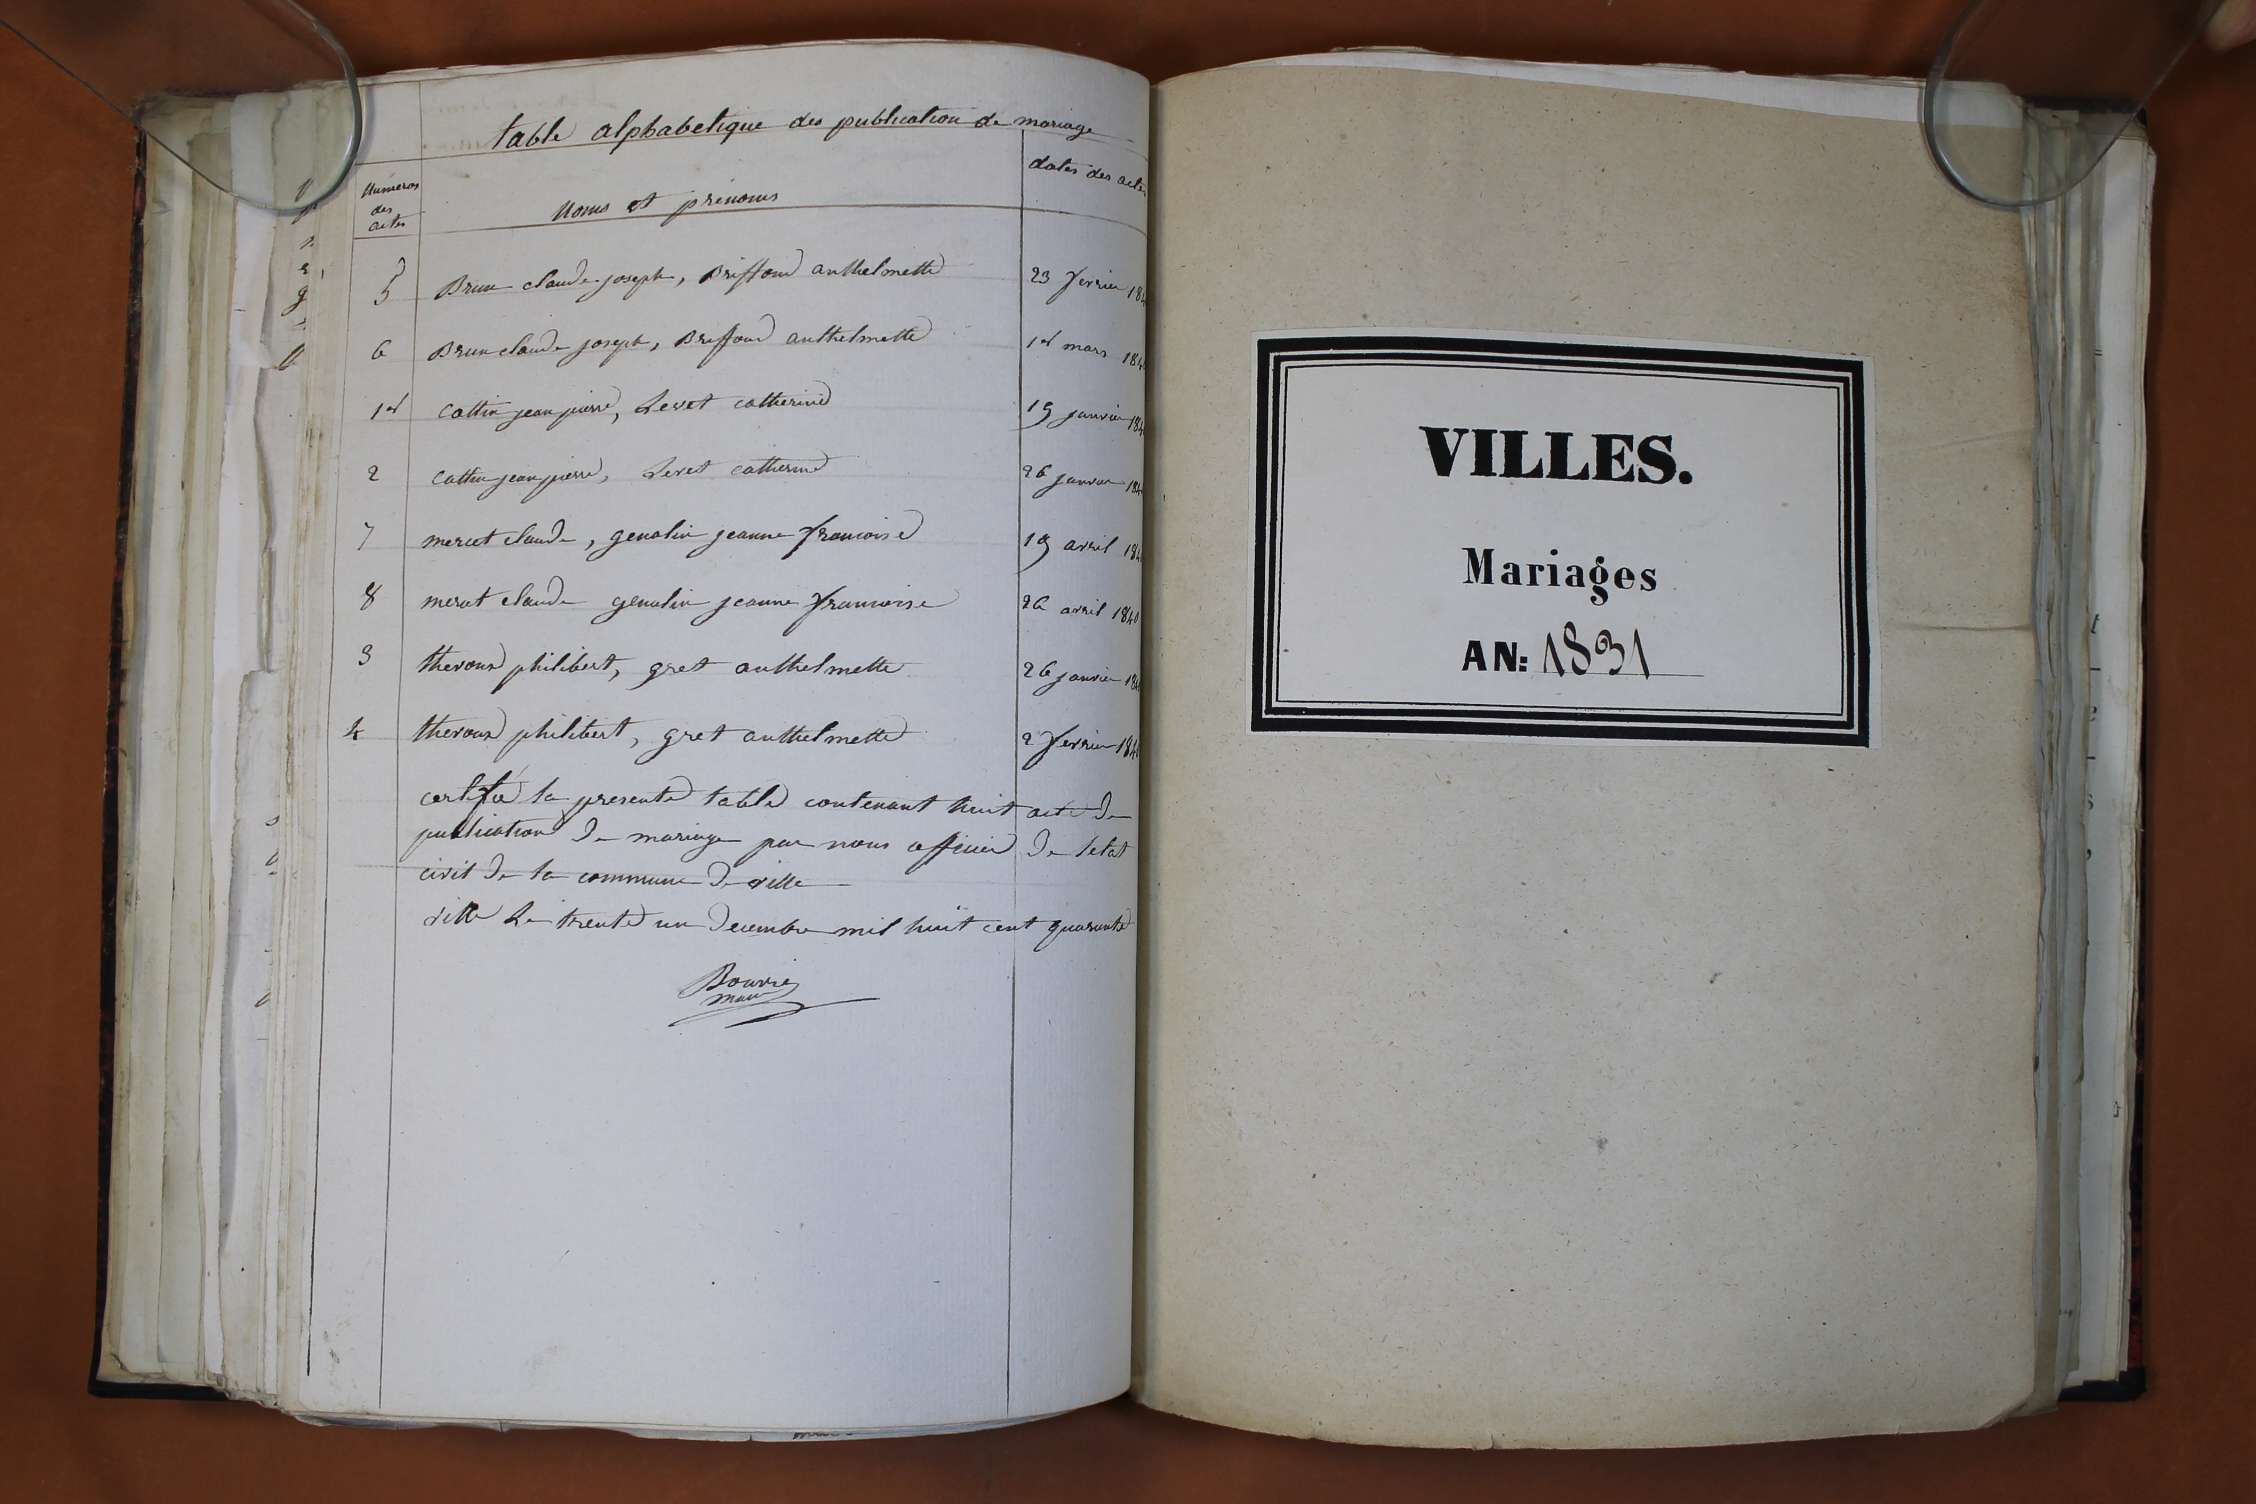 table alphabetique des publication de mariage
Numeros des actes
Noms et prénoms
dates des actes
5 Brun claude joseph, Briffond anthelmette 23 fevrier 184
6 Brun claude joseph, Briffond anthelmette 1er mars 184
1er Cattin jean pierre, Levet catherine 19 janvier 184
2 Cattin jean pierre, Levet catherine 26 janvier 184
7 mercet claude, genolin jeanne francoise 19 avril 184
8 mercet claude genolin jeanne francoise 26 avril 1840
3 philibert, gret anthelmette 26 janvier 184
4 philibert, gret anthelmette 2 fevrier 184
certifié la presente table contenant huit acte de
publication de mariage par nous officier de letat
civil de la commune de ville
ville Le trente un decembre mil huit cent quarante
maire
VILLES.
Mariages
AN: 1831